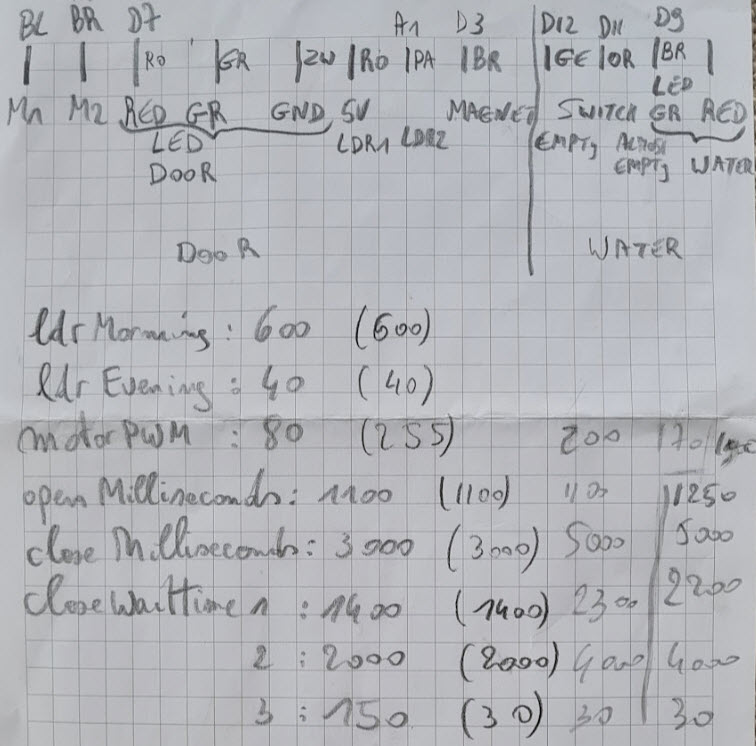 BL BR D7 A1 D3 D12 D11 D9
RO GR ZW RO PA BR GE OR BR
LED
M1 M2 RED GR GND 5V MAGNET SWITCH GR RED
LED LDR1 LDR2 EMPTY ALMOST
DOOR EMPTY WATER
DOOR WATER
ldr Morning : 600 (600)
ldr Evening : 40 (40)
motorPWM : 80 (255) 200 170
open Milliseconds : 1100 (1100) 1100 11250
close Milliseconds : 3000 (3000) 5000 5000
Close Waittime 1 : 1400 (1400) 2300 2200
2 : 2000 (2000) 4000 4000
3 : 150 (30) 30 30